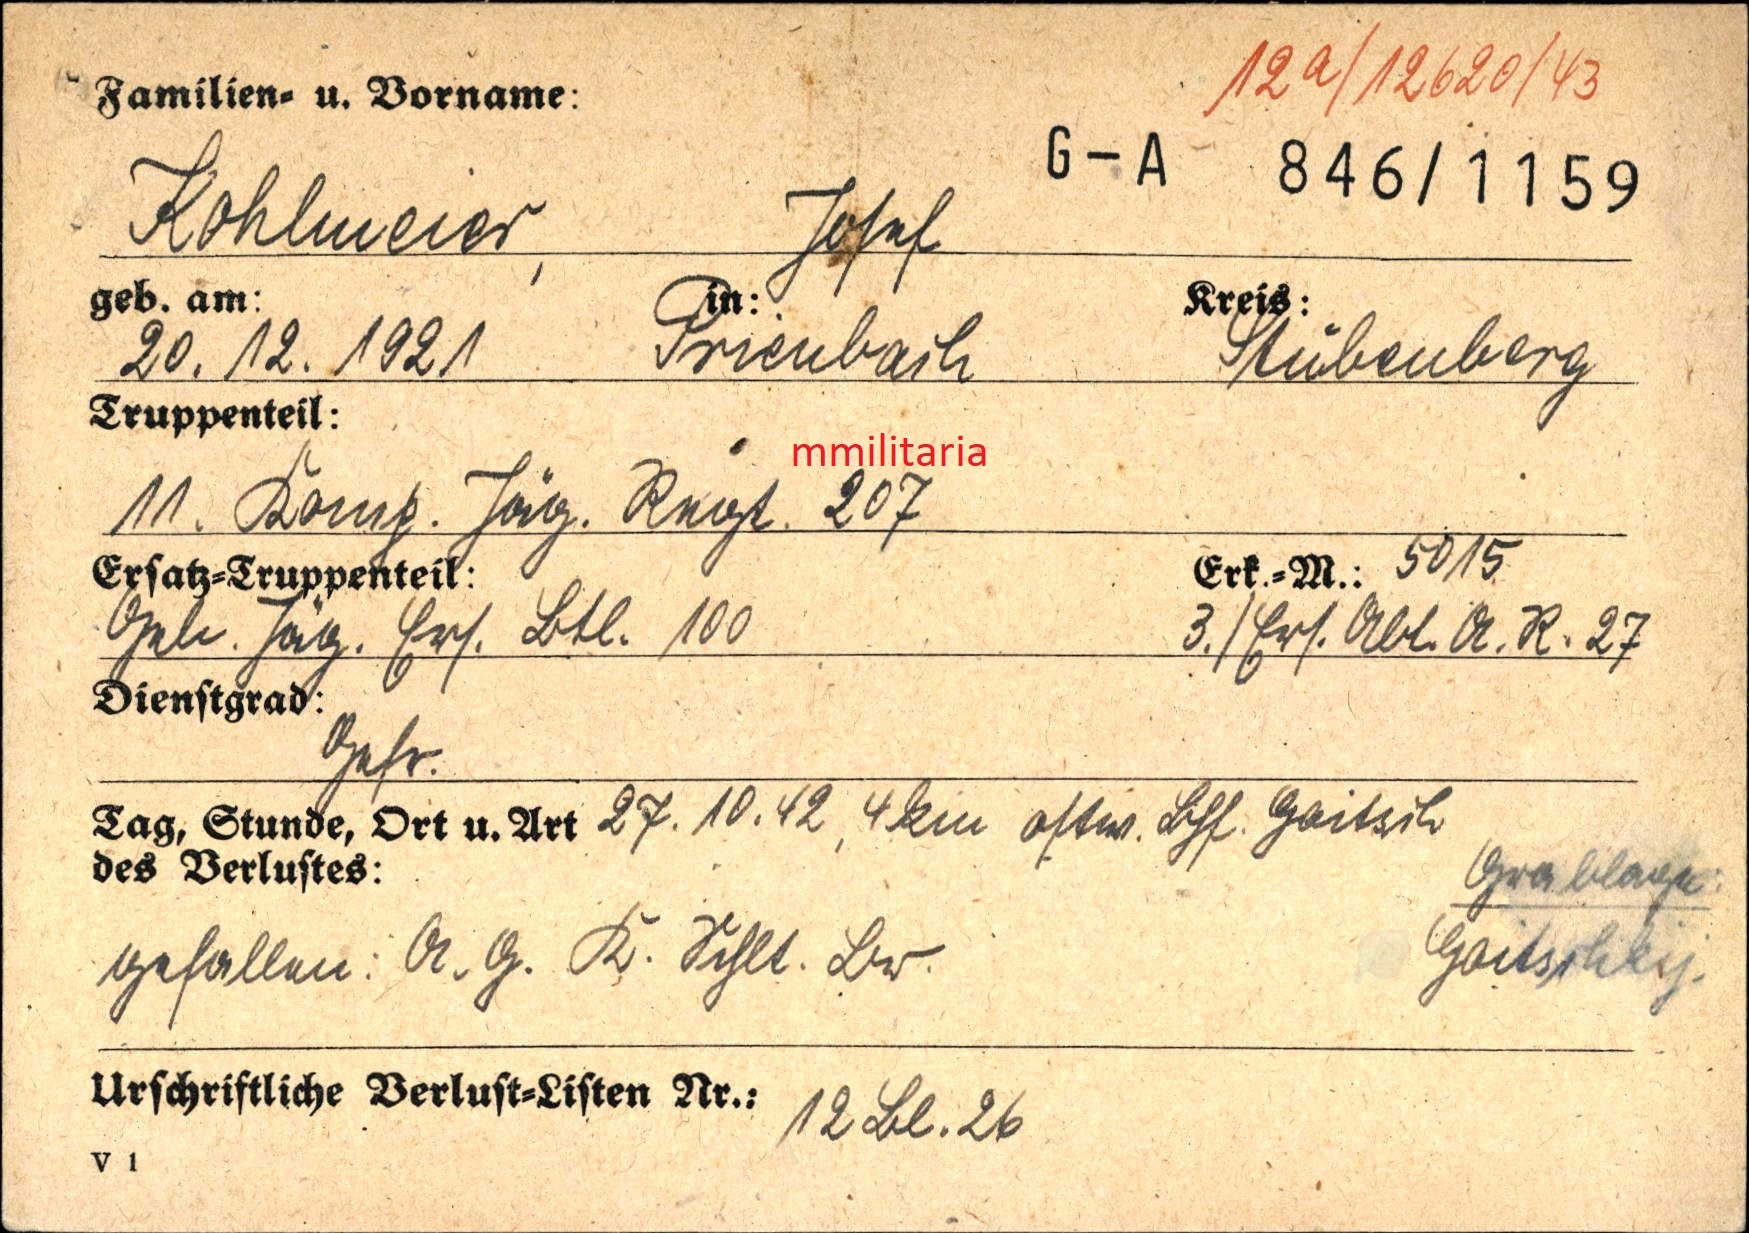 12a/12620/43
Familien- u. Vorname:
G-A 846/1159
Kohlmeier, Josef
geb. am: in: Kreis:
20. 12. 1921 Prienbach Stubenberg
Truppenteil:
mmilitaria
11. Komp. Jäg. Regt. 207
Ersatz-Truppenteil: Erk.-M.: 5015
Geb. Jäg. Ers. Btl. 100 3./Ers. Abt. A. R. 27
Dienstgrad:
Gefr.
Tag, Stunde, Ort u. Art 27. 10. 42, 4 km ostw. Bhf. Goitsch
des Verlustes:
Grablage:
gefallen: A. G. K. Schlt. Br.
Urschriftliche Verlust-Listen Nr.: 12 Bl. 26
V 1